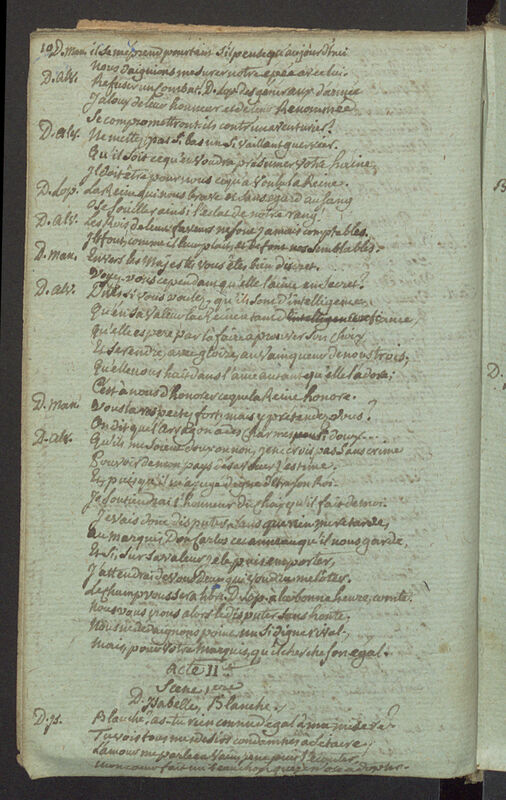 10 D. Man. il se meprend pourtant s'il pense qu'aujourd'hui
Nous daignions mesurer notre epée avec lui.
D. Alv. Refuser un combat. D. Lop. des generaux d'armée
Jaloux de leur honneur et de leur Renommée
Se compromettront ils contre un aventurier?
D. Alv. Ne mettez pas si bas un si vaillant guerrier.
Qu'il soit ce qu'en voudra présumer votre haine
Il doit être pour nous ce qu'a voulu la Reine.
D. Lop. La Reine qui nous brave et sans egard au sang
Ose souiller ainsi l'eclat de notre rang!
D. Alv. Les Rois de leurs faveurs ne sont jamais comptables.
Ils font, comme il leur plait, et defont nos semblables.
D. Man. Envers les Majestés vous êtes bien discret.
Voyez-vous cependant qu'elle l'aime en secret?
D. Alv. Dites, si vous voulez, qu'ils sont d'intelligence,
Qu'en sa valeur la Reine a tant d'intelligence confiance,
Qu'elle espere par là faire aprouver son choix
Et se rendre, avec gloire, au vainqueur de nous trois;
Qu'elle nous hait dans l'ame autant qu'elle l'adore;
C'est à nous d'honorer ce que la Reine honore.
D. Man. Vous la respectez fort; mais y pretendez vous?
On dit que l'Arragon a des charmes si doux...
D. Alv. Qu'ils me soient doux ou non, je ne crois pas sans crime
Pouvoir de mon pays desavouer l'estime.
Et puisqu'il m'a jugé digne d'etre son Roi
Je soutiendrai l'honneur du choix qu'il fait de moi.
Je vais donc disputer, sans que rien me retarde,
Au marquis Don Carlos cet anneau qu'il nous garde
Et si, sur sa valeur, je le puis emporter,
J'attendrai de vous deux qui voudra me l'oter.
Le champ vous sera libre. D. Lop. à la bonne heure, comte.
Nous vous irons alors le disputer sans honte.
Nous ne dedaignons point un si digne rival.
Mais, pour votre marquis, qu'il cherche son egal.
Acte II
Scene 1ere
D. Isabelle, Blanche.
D. Is. Blanche, as-tu rien connu d'egal à ma misere?
Tu vois tous mes desirs condamnés à se taire;
mon coeur fait un beau choix